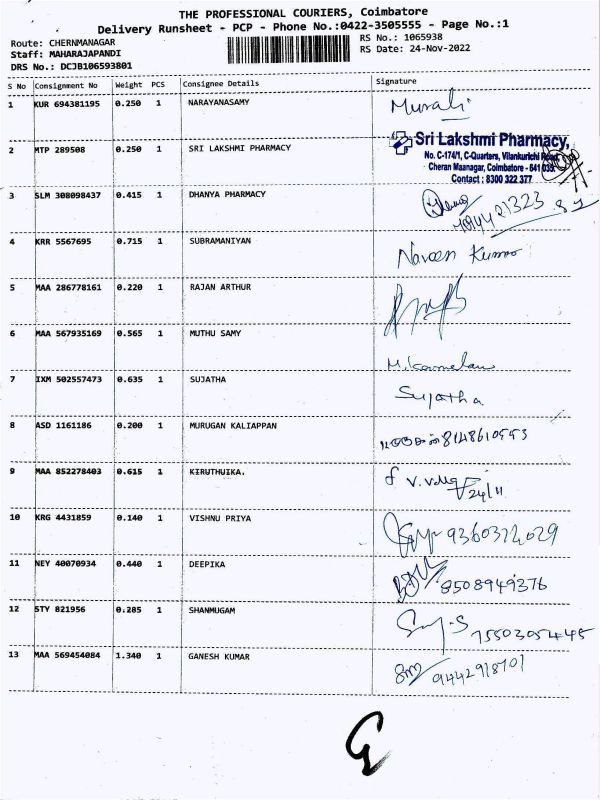 THE PROFESSIONAL COURIERS, Coimbatore
Delivery Runsheet - PCP - Phone No.:0422-3505555 - Page No.:1
Route: CHERNMANAGAR
RS No.: 1065938
Staff: MAHARAJAPANDI
RS Date: 24-Nov-2022
DRS No.: DCJB106593801
S No Consignment No Weight PCS Consignee Details Signature
1 KUR 694381195 0.250 1 NARAYANASAMY Murali
2 MTP 289508 0.250 1 SRI LAKSHMI PHARMACY
Sri Lakshmi Pharmacy,
No. C-174/1, C-Quarters, Vilankurichi Road,
Cheran Maanagar, Coimbatore - 641 035.
Contact : 8300 322 377
3 SLM 308098437 0.415 1 DHANYA PHARMACY
4 KRR 5567695 0.715 1 SUBRAMANIYAN Naveen Kumar
5 MAA 286778161 0.220 1 RAJAN ARTHUR
6 MAA 567935169 0.565 1 MUTHU SAMY
7 IXM 502557473 0.635 1 SUJATHA Sujatha
8 ASD 1161186 0.200 1 MURUGAN KALIAPPAN 8148610553
9 MAA 852278403 0.615 1 KIRUTHUIKA. 24/11
10 KRG 4431859 0.140 1 VISHNU PRIYA
11 NEY 40070934 0.440 1 DEEPIKA 8508949376
12 STY 821956 0.285 1 SHANMUGAM
13 MAA 569454084 1.340 1 GANESH KUMAR 9442918701